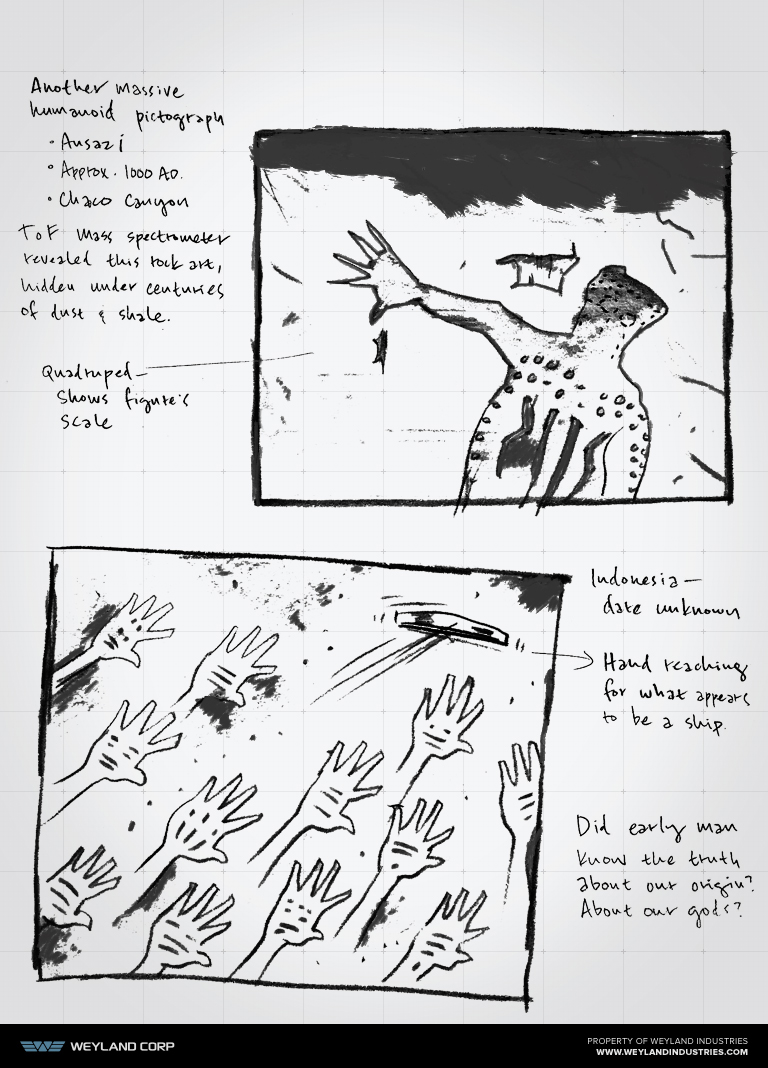 Another massive
humanoid pictograph
• Ansazi
• Approx. 1000 AD.
• Chaco Canyon
ToF mass spectrometer
revealed this rock art,
hidden under centuries
of dust & shale.
Quadruped—
shows figure's
scale
Indonesia—
date unknown
Hand reaching
for what appears
to be a ship.
Did early man
know the truth
about our origin?
About our gods?
WEYLAND CORP
PROPERTY OF WEYLAND INDUSTRIES
WWW.WEYLANDINDUSTRIES.COM